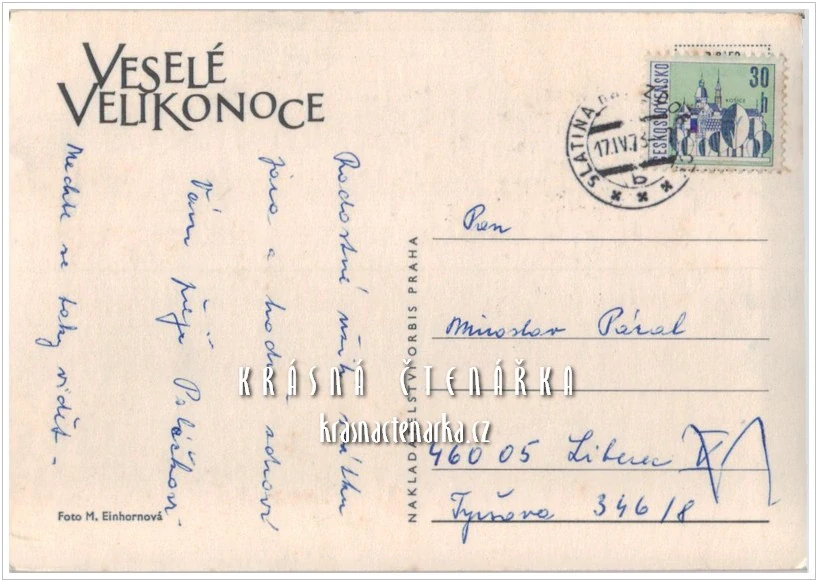 VESELÉ
VELIKONOCE
Radostné
jara a hodně
Vám přejí
Nechte se taky vidět -
Foto M. Einhornová
NAKLADATELSTVÍ ORBIS PRAHA
ČESKOSLOVENSKO
30
h
SLATINA
17.IV.73
b
Pan
Miroslav Páral
460 05 Liberec V
Tyršova 346/8
KRÁSNÁ ČTENÁŘKA
krasnactenarka.cz